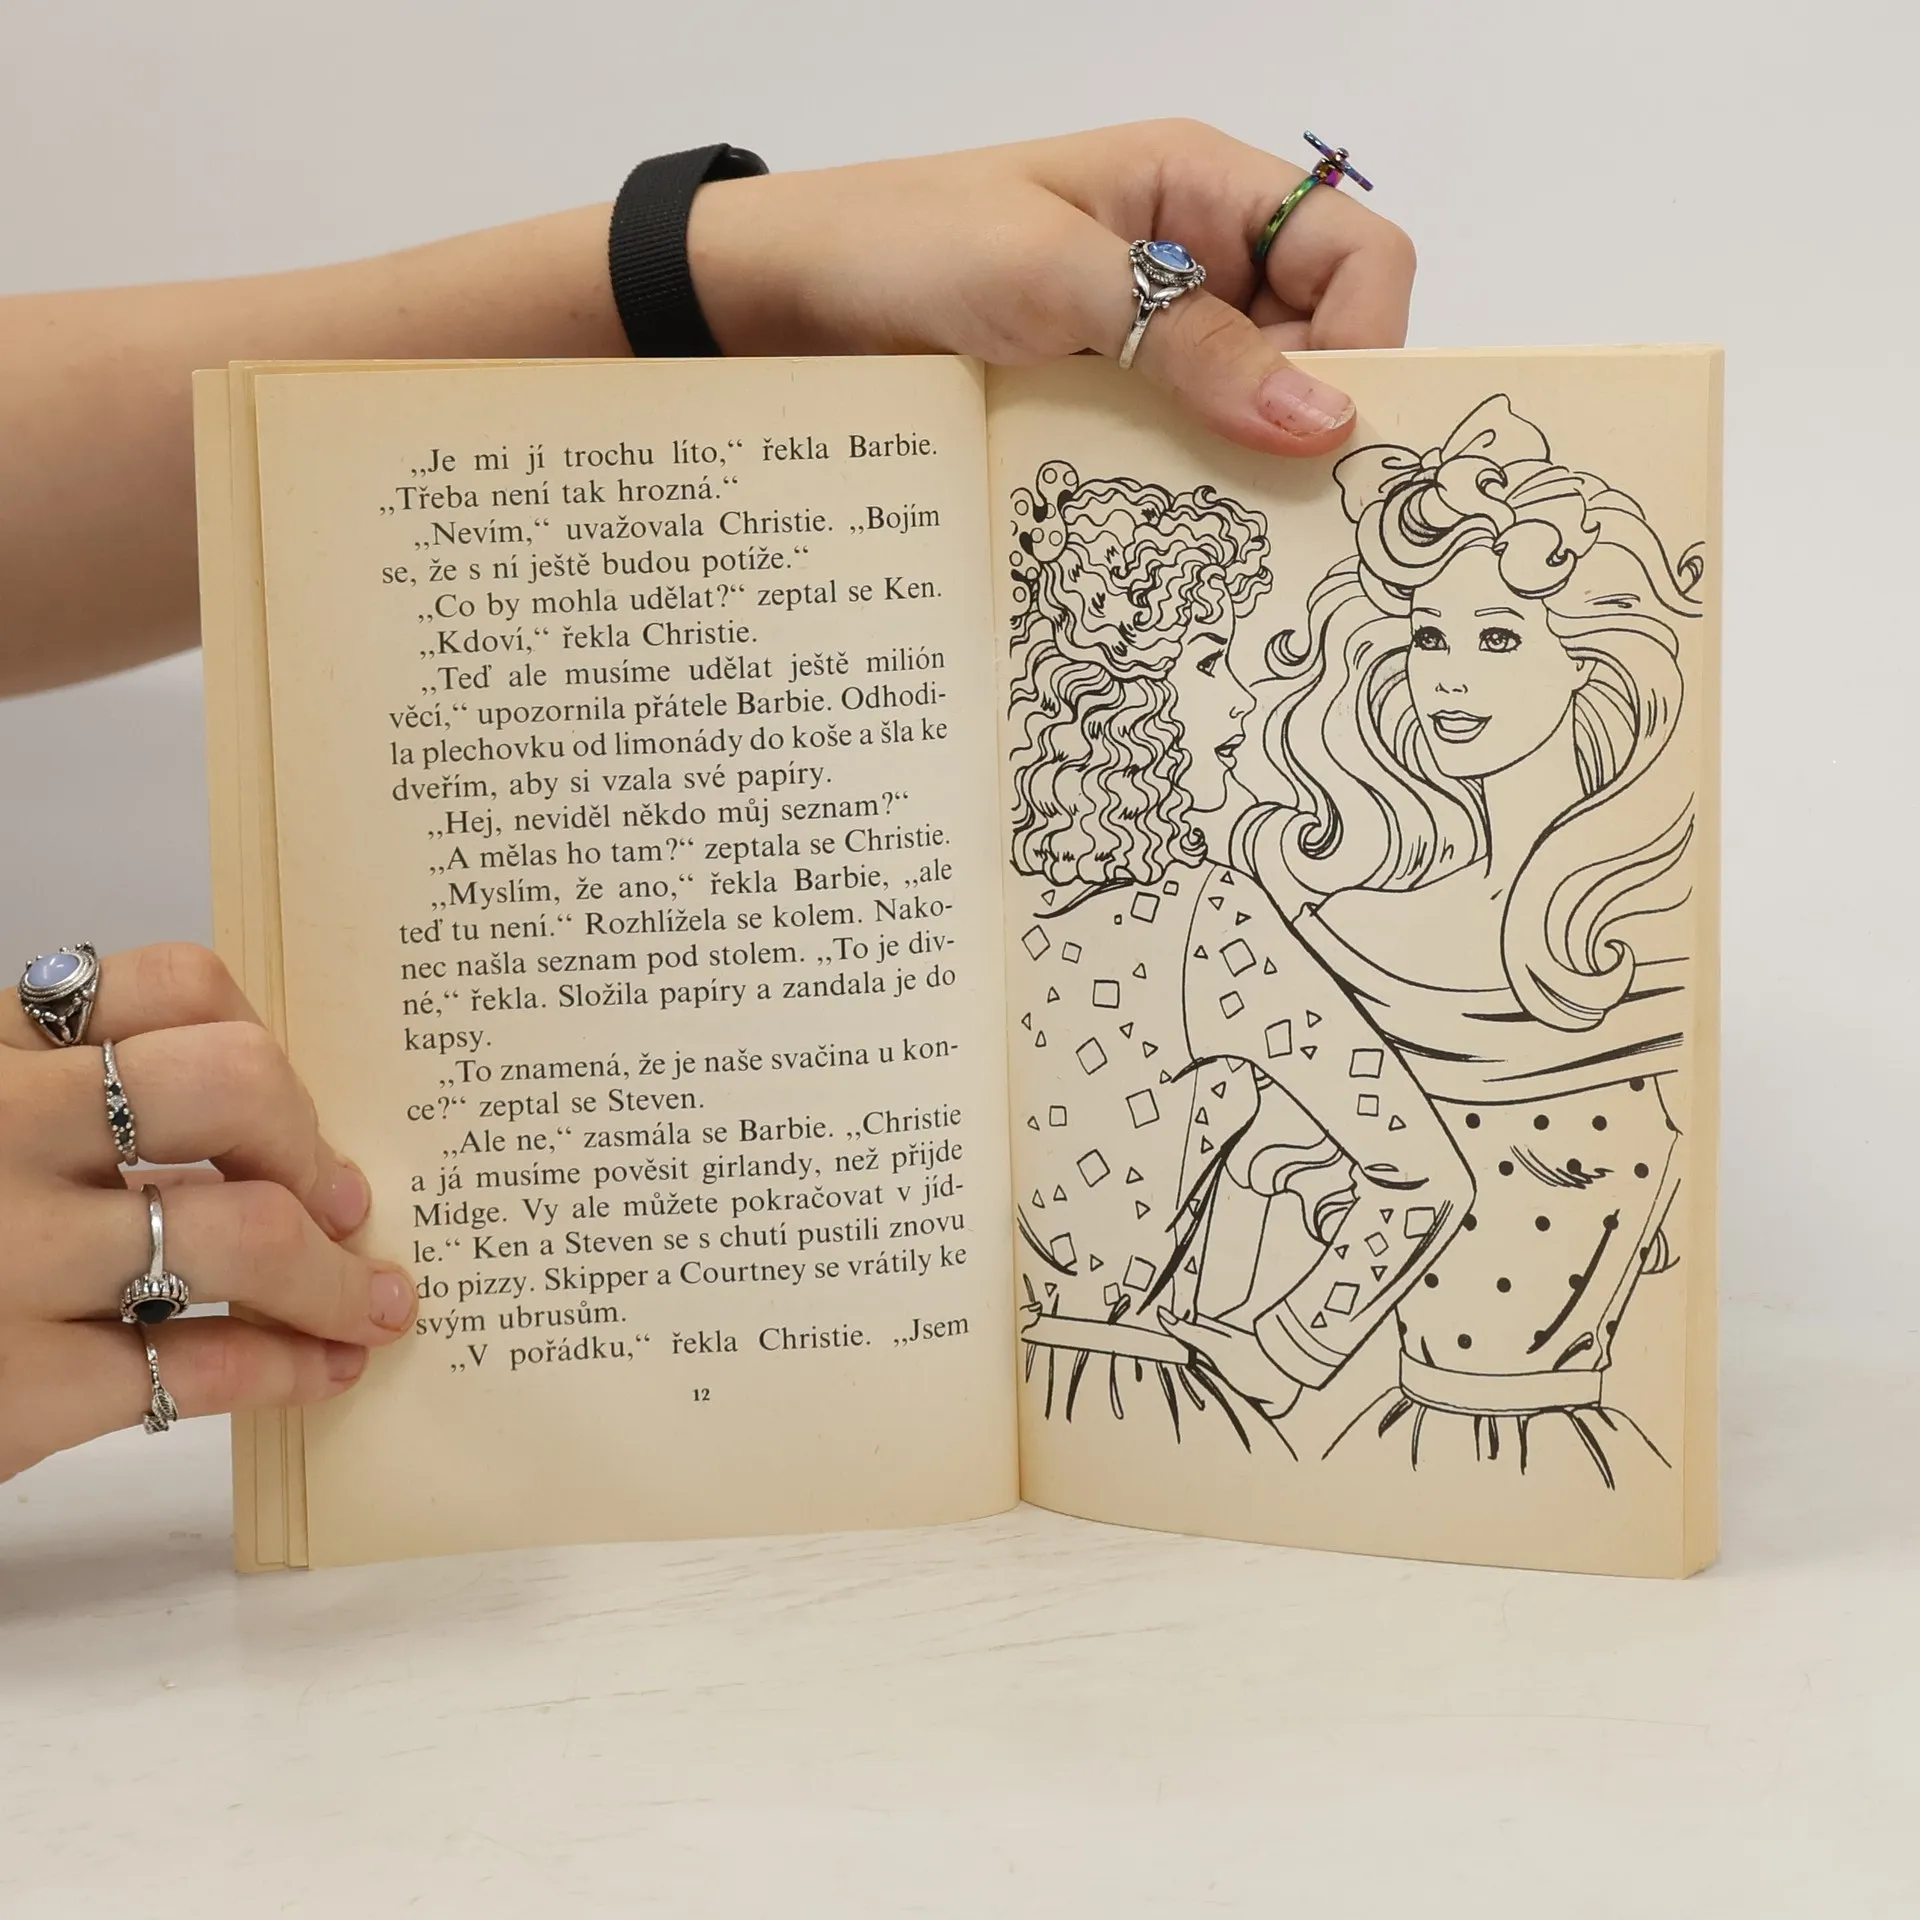 ,,Je mi jí trochu líto,“ řekla Barbie.
,,Třeba není tak hrozná.“
,,Nevím,“ uvažovala Christie. ,,Bojím
se, že s ní ještě budou potíže.“
,,Co by mohla udělat?“ zeptal se Ken.
,,Kdoví,“ řekla Christie.
,,Teď ale musíme udělat ještě milión
věcí,“ upozornila přátele Barbie. Odhodi-
la plechovku od limonády do koše a šla ke
dveřím, aby si vzala své papíry.
,,Hej, neviděl někdo můj seznam?“
,,A mělas ho tam?“ zeptala se Christie.
,,Myslím, že ano,“ řekla Barbie, ,,ale
teď tu není.“ Rozhlížela se kolem. Nako-
nec našla seznam pod stolem. ,,To je div-
né,“ řekla. Složila papíry a zandala je do
kapsy.
,,To znamená, že je naše svačina u kon-
ce?“ zeptal se Steven.
,,Ale ne,“ zasmála se Barbie. ,,Christie
a já musíme pověsit girlandy, než přijde
Midge. Vy ale můžete pokračovat v jíd-
le.“ Ken a Steven se s chutí pustili znovu
do pizzy. Skipper a Courtney se vrátily ke
svým ubrusům.
,,V pořádku,“ řekla Christie. ,,Jsem
12